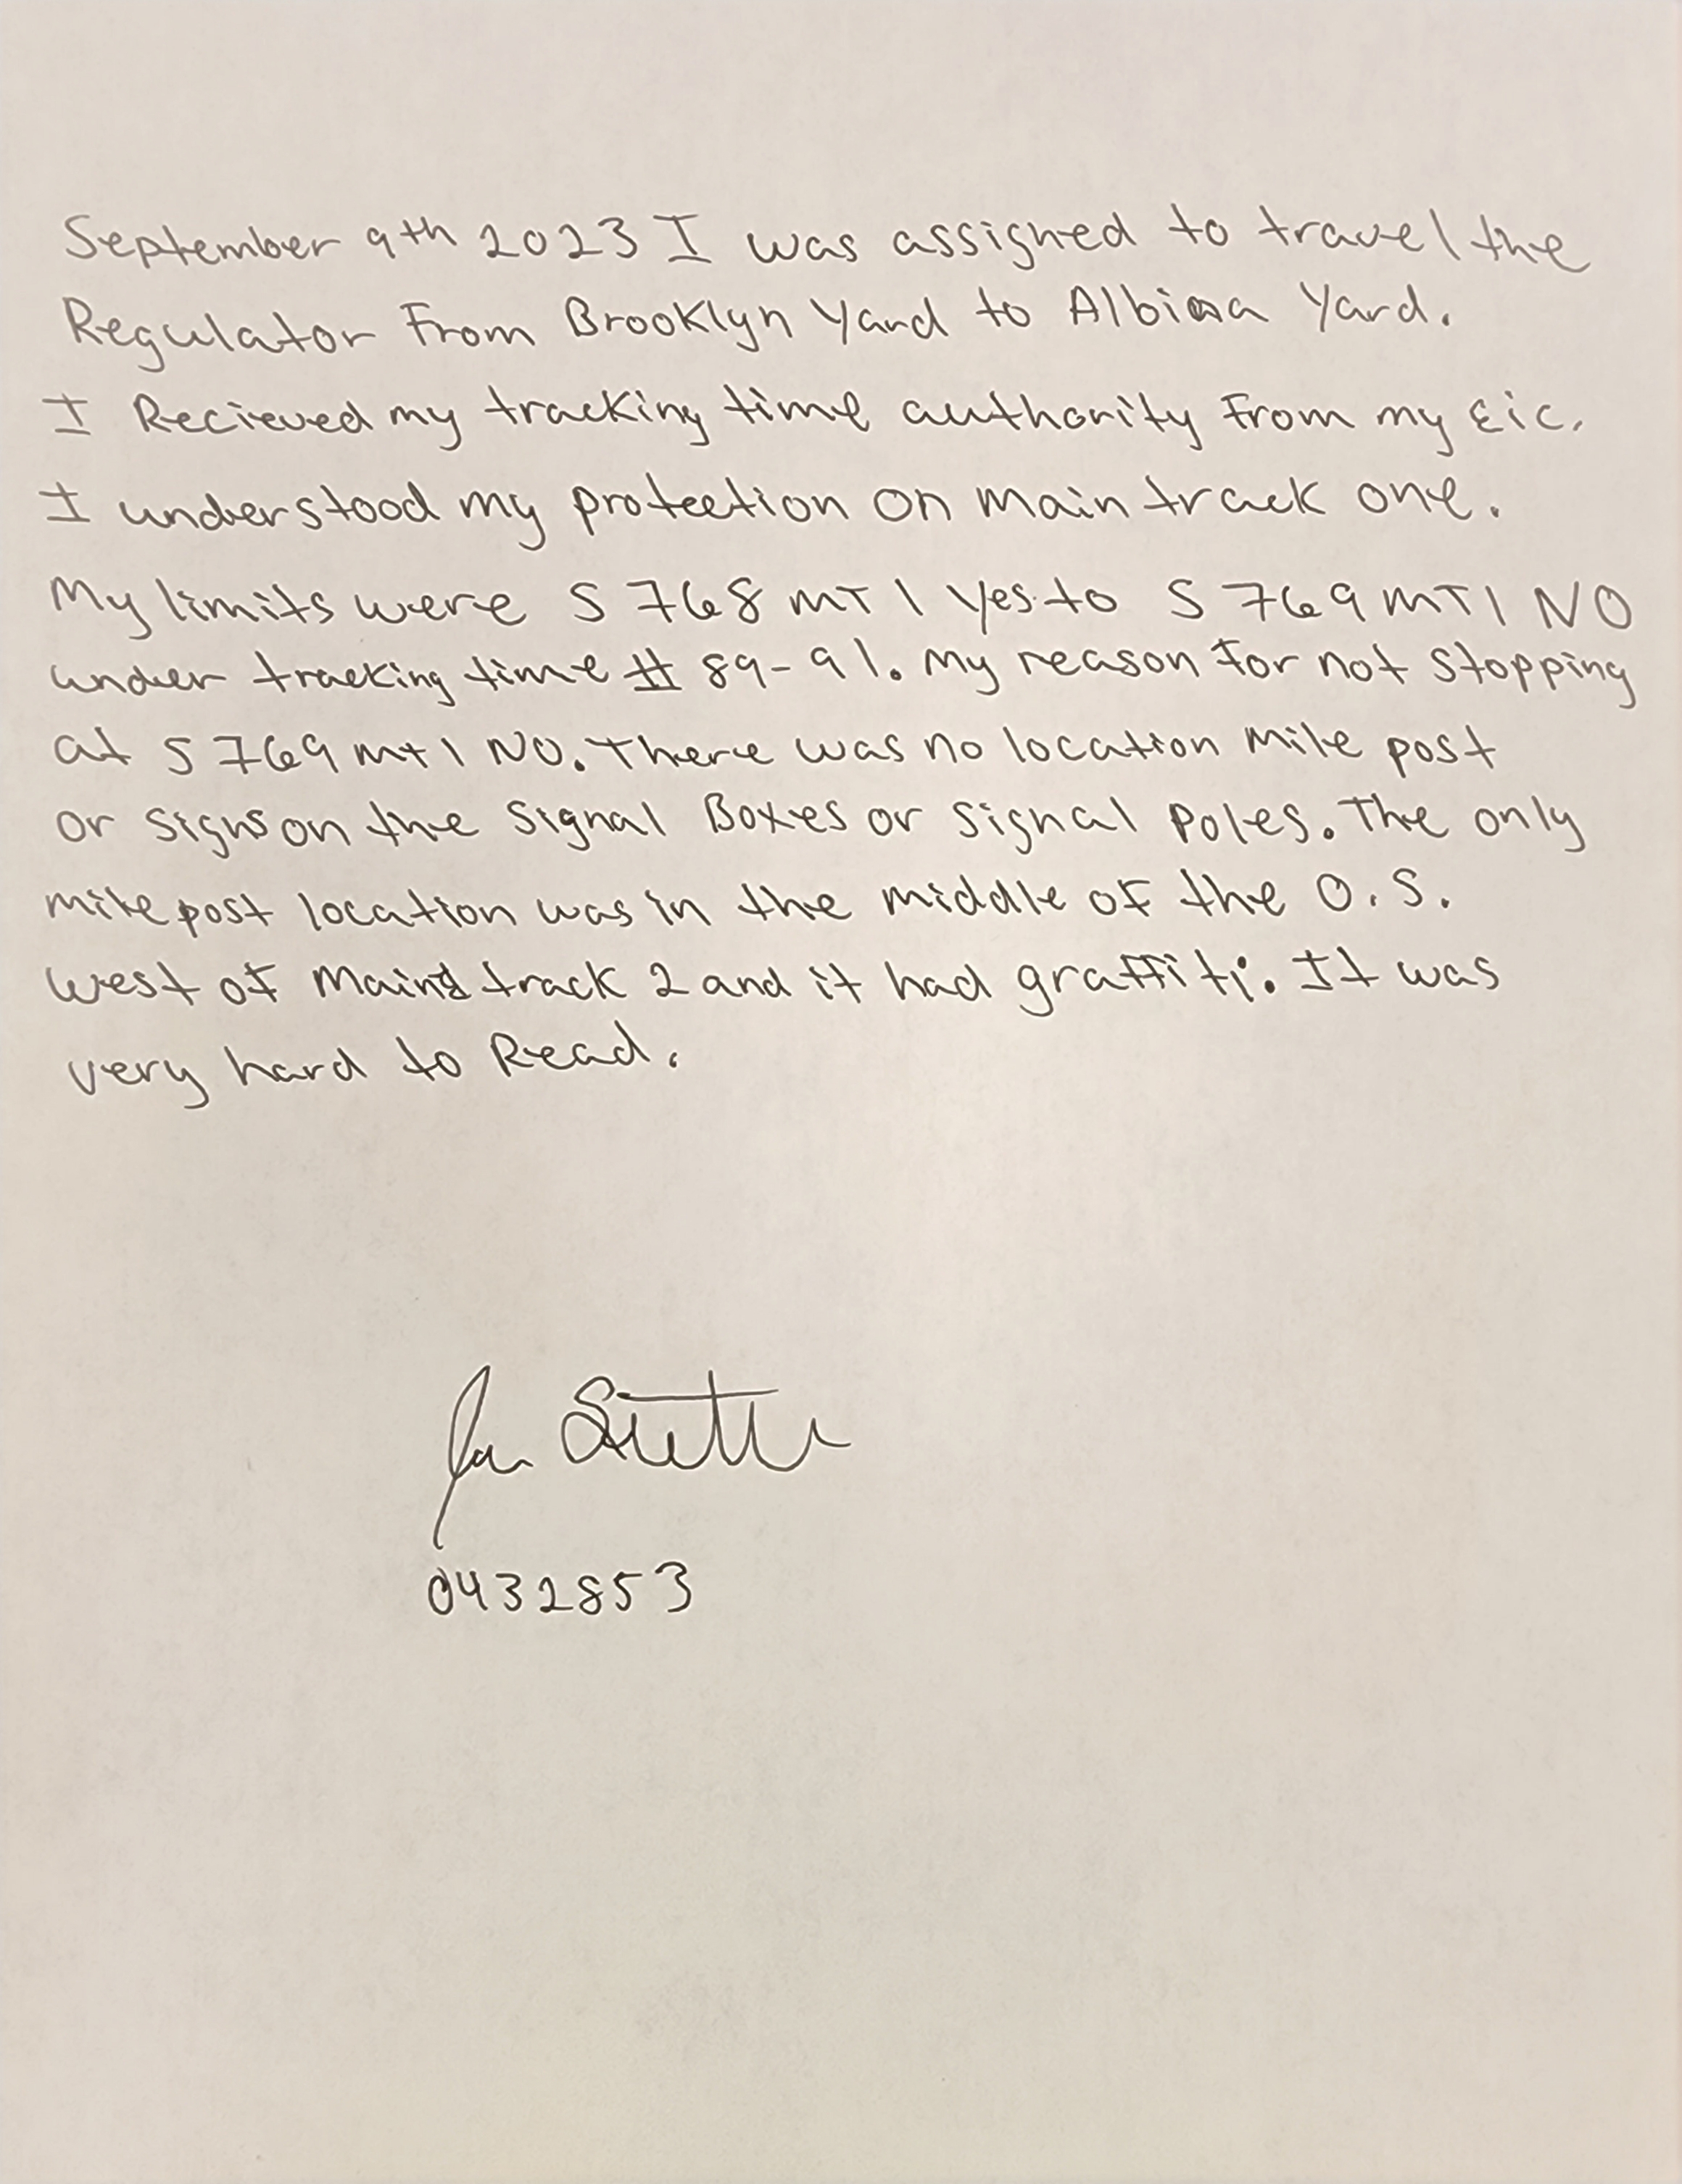 September 9th 2023 I was assigned to travel the
Regulator From Brooklyn Yard to Albina Yard.
I Recieved my tracking time authority From my Eic.
I understood my protection on main track one.
My limits were S 768 MT 1 Yes to S 769 MT 1 NO
under tracking time # 89-91. My reason For not stopping
at S 769 mt 1 NO. There was no location mile post
or signs on the signal Boxes or signal Poles. The only
mile post location was in the middle of the O.S.
West of Main track 2 and it had graffiti. It was
very hard to Read.
0432853